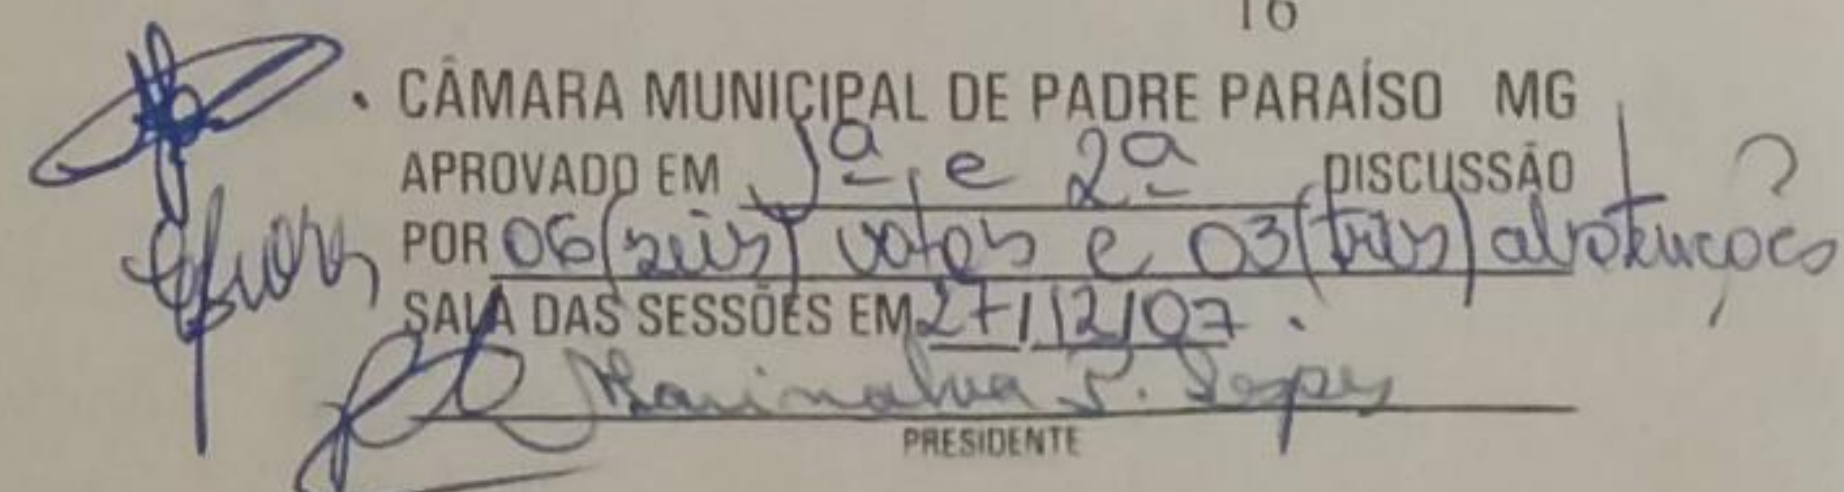 16
CÂMARA MUNICIPAL DE PADRE PARAÍSO MG
APROVADO EM 1ª e 2ª DISCUSSÃO
POR 06 (seis) votos e 03 (três) abstenções
SALA DAS SESSÕES EM 27/12/07.
Marinalva S. Lopes
PRESIDENTE